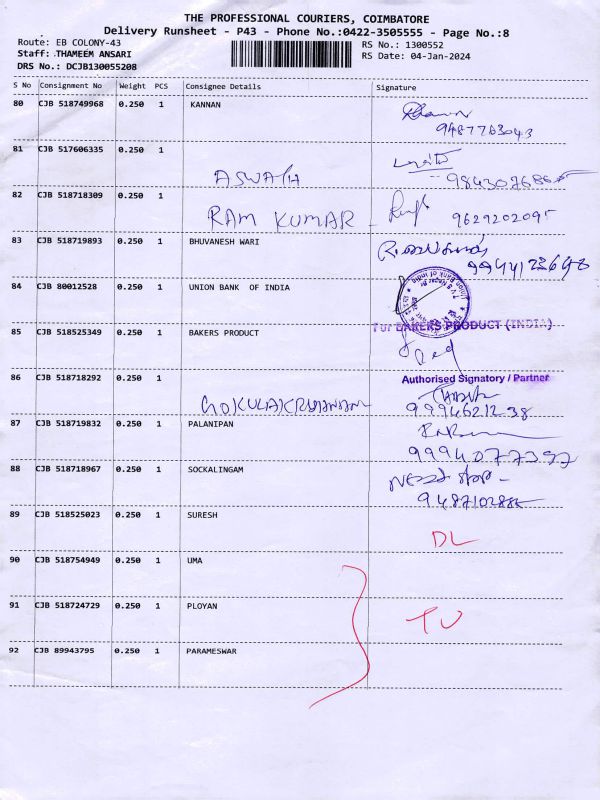 THE PROFESSIONAL COURIERS, COIMBATORE
Delivery Runsheet - P43 - Phone No.:0422-3505555 - Page No.:8
Route: EB COLONY-43
RS No.: 1300552
Staff: THAMEEM ANSARI
RS Date: 04-Jan-2024
DRS No.: DCJB130055208
S No Consignment No Weight PCS Consignee Details Signature
80 CJB 518749968 0.250 1 KANNAN
9487763043
81 CJB 517606335 0.250 1
ASWATH
82 CJB 518718309 0.250 1
RAM KUMAR
9629202095
83 CJB 518719893 0.250 1 BHUVANESH WARI
9944123648
84 CJB 80012528 0.250 1 UNION BANK OF INDIA
For BAKERS PRODUCT (INDIA)
85 CJB 518525349 0.250 1 BAKERS PRODUCT
Authorised Signatory / Partner
86 CJB 518718292 0.250 1
9994621238
87 CJB 518719832 0.250 1 PALANIPAN
9994077397
88 CJB 518718967 0.250 1 SOCKALINGAM
89 CJB 518525023 0.250 1 SURESH
DL
90 CJB 518754949 0.250 1 UMA
91 CJB 518724729 0.250 1 PLOYAN
92 CJB 89943795 0.250 1 PARAMESWAR